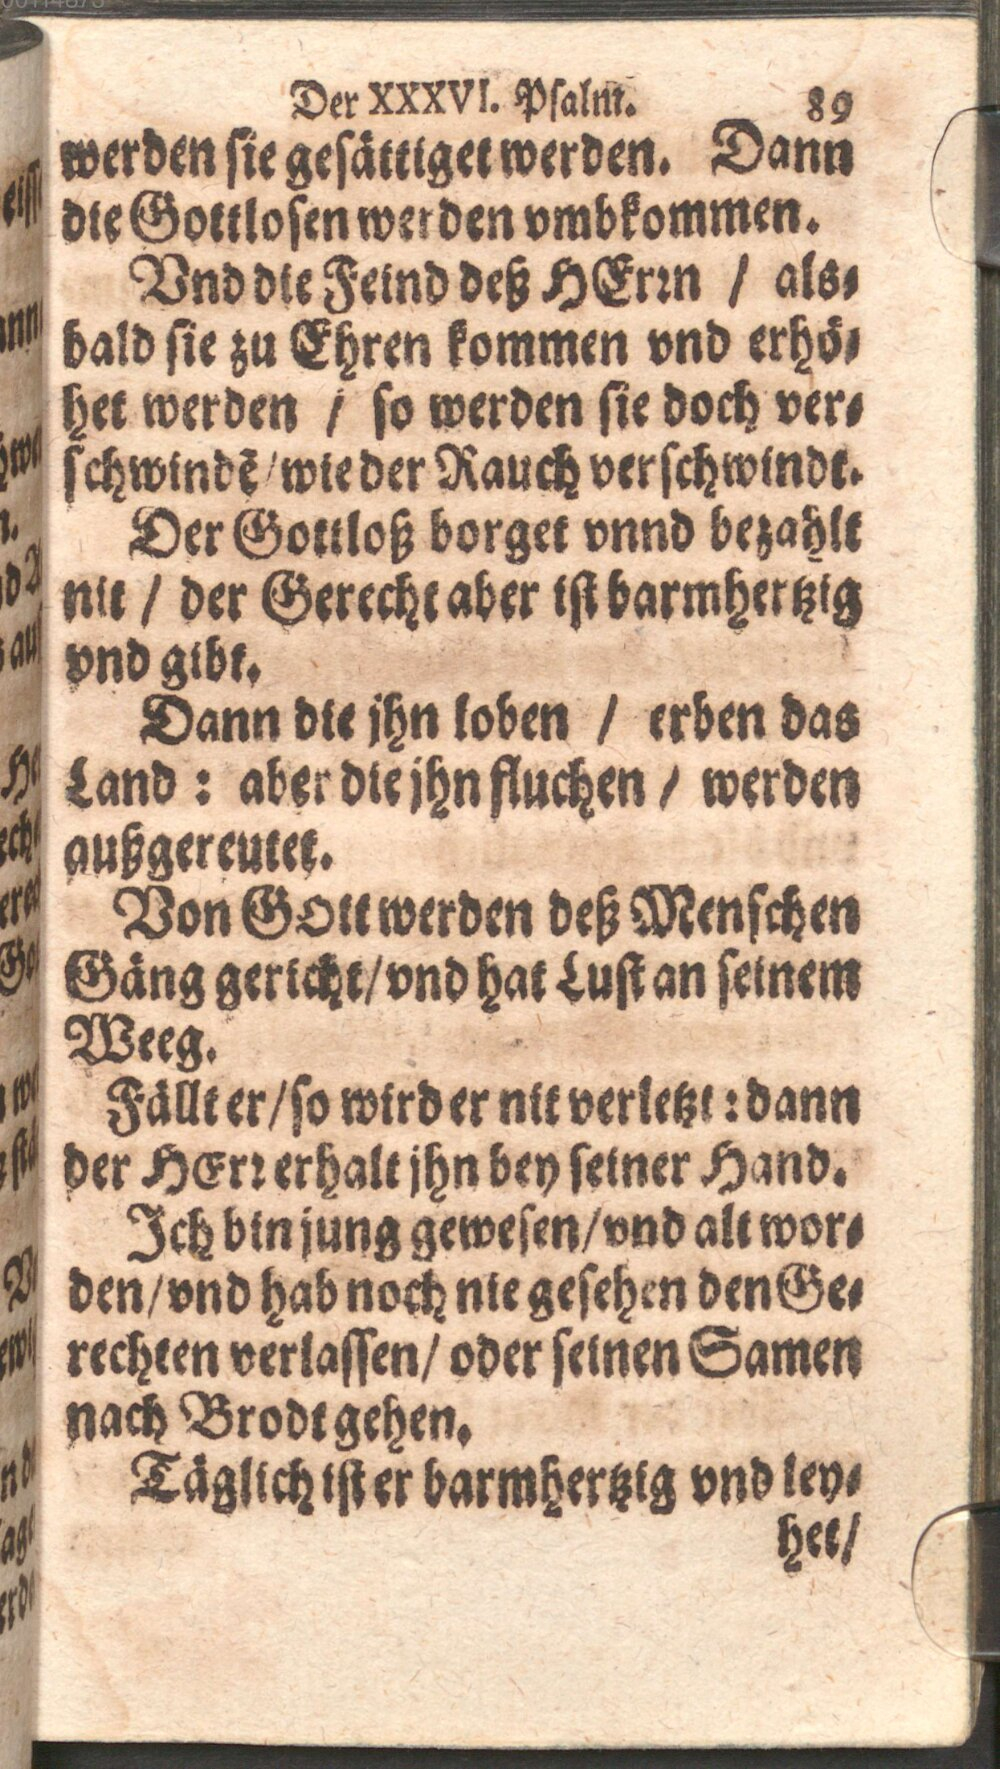 Der XXXVI. Psalm. 89
werden sie gesättiget werden. Dann
die Gottlosen werden vmbkommen.
Vnd die Feind deß HErꝛn / als⸗
bald sie zu Ehren kommen vnd erhö⸗
het werden / so werden sie doch ver⸗
schwindē/wie der Rauch verschwindt.
Der Gottloß borget vnnd bezahlt
nit / der Gerecht aber ist barmhertzig
vnd gibt.
Dann die jhn loben / erben das
Land : aber die jhn fluchen / werden
außgereutet.
Von GOtt werden deß Menschen
Gäng gericht/vnd hat Lust an seinem
Weeg.
Fällt er/so wird er nit verletzt : dann
der HErꝛ erhalt jhn bey seiner Hand.
Ich bin jung gewesen/vnd alt wor⸗
den/vnd hab noch nie gesehen den Ge⸗
rechten verlassen/ oder seinen Samen
nach Brodt gehen.
Täglich ist er barmhertzig vnd ley⸗
het/